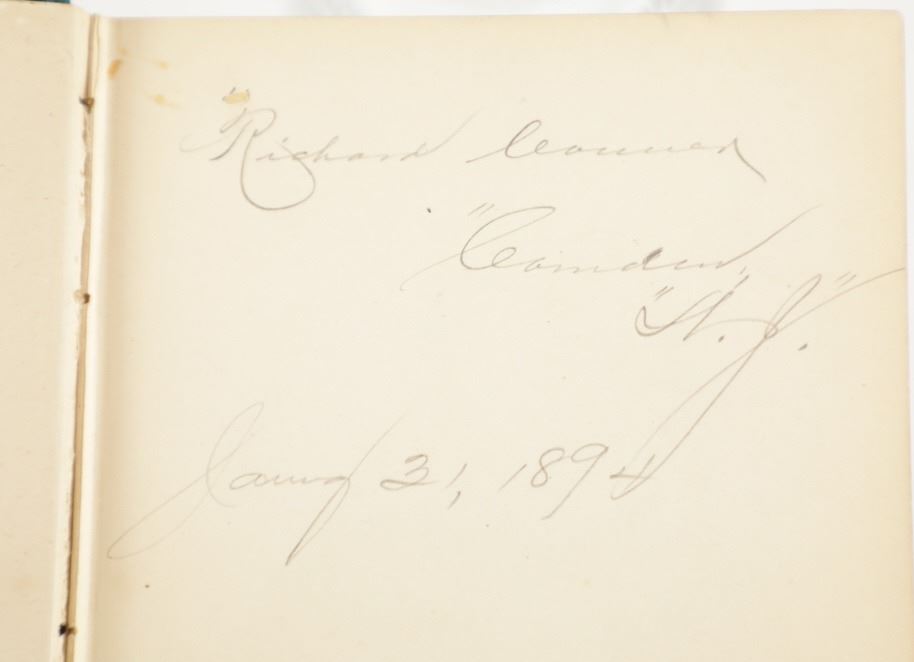 "Richard Connor
"Camden,"
"N. J."
Jany 31, 1894